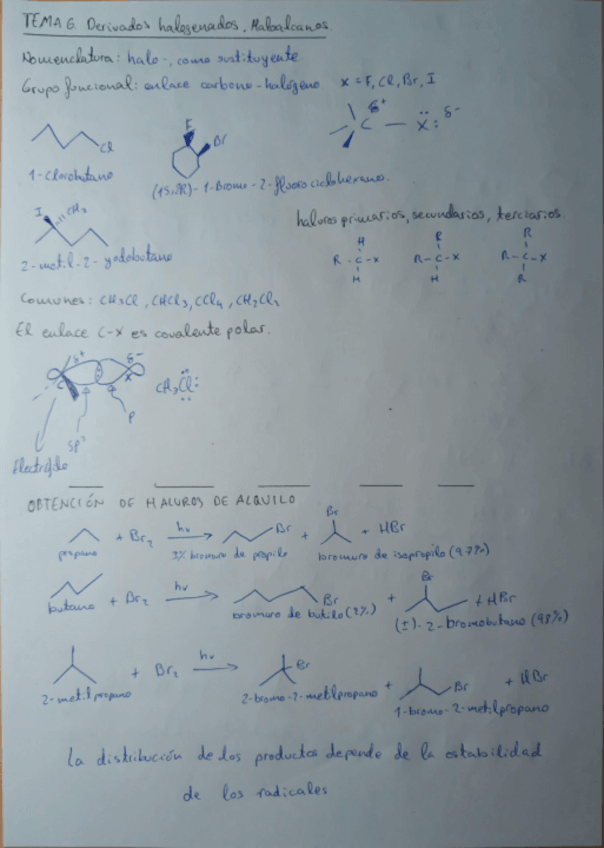 TEMA 6. Derivados halogenados. Haloalcanos
Nomenclatura: halo-, como sustituyente
Grupo funcional: enlace carbono-halógeno X = F, Cl, Br, I
Cl
F
Br
δ+
C — X: δ-
1-Clorobutano
(1S,2R)-1-Bromo-2-fluorociclohexano.
I CH3
2-metil-2-yodobutano
haluros primarios, secundarios, terciarios.
H R R
R-C-X R-C-X R-C-X
H H R
Comunes: CH3Cl, CHCl3, CCl4, CH2Cl2
El enlace C-X es covalente polar.
δ+ δ-
X
CH3Cl:
sp3 P
Electrófilo
OBTENCIÓN DE HALUROS DE ALQUILO
+ Br2 hν Br + Br + HBr
propano 3% bromuro de propilo bromuro de isopropilo (97%)
+ Br2 hν Br + Br + HBr
butano bromuro de butilo (2%) (±)-2-bromobutano (98%)
+ Br2 hν Br + Br + HBr
2-metilpropano 2-bromo-2-metilpropano 1-bromo-2-metilpropano
La distribución de los productos depende de la estabilidad
de los radicales